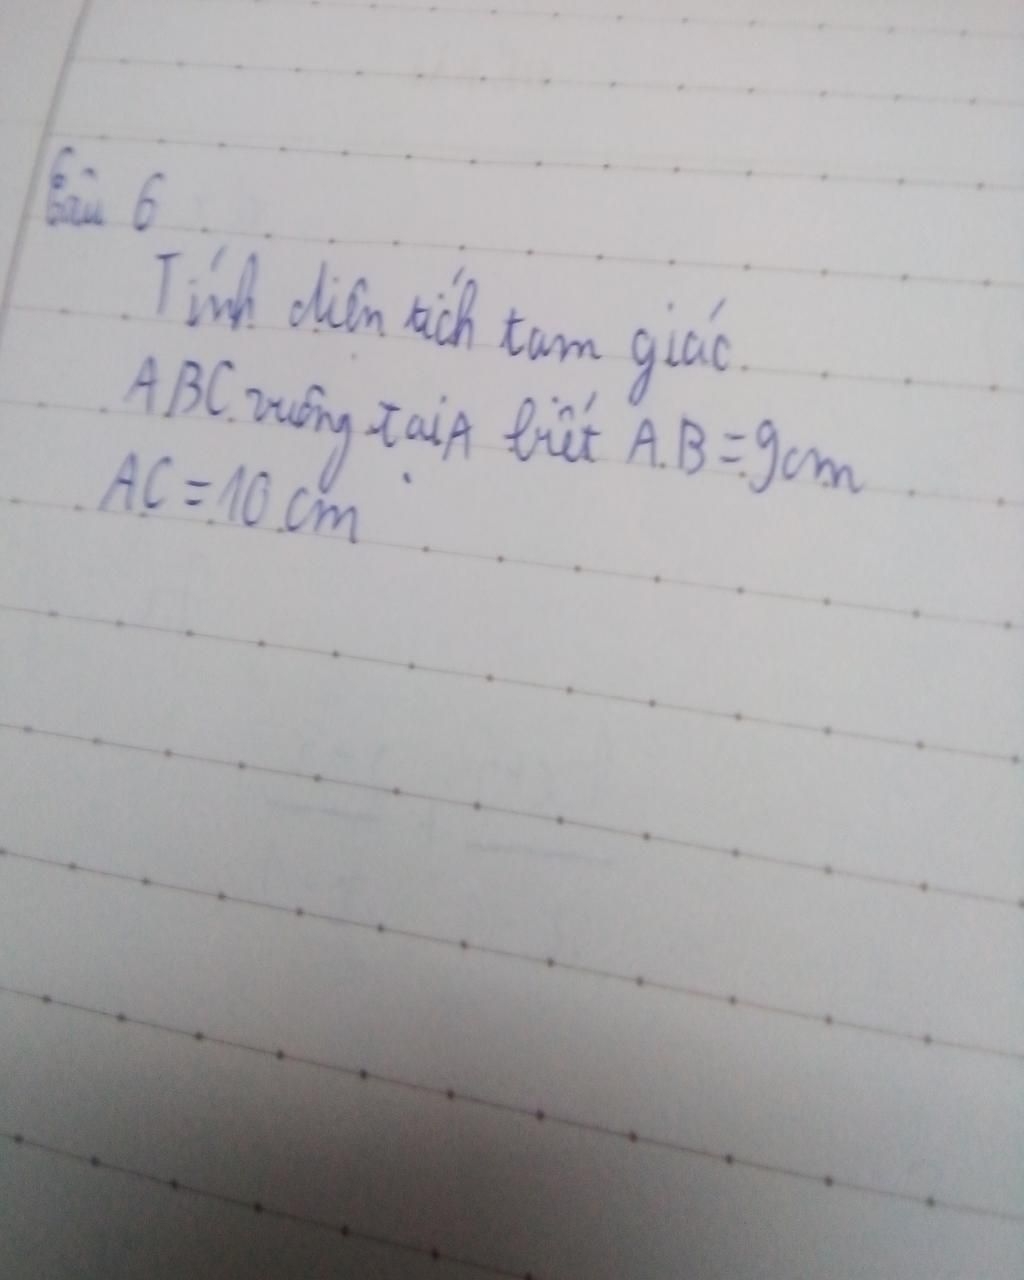 Câu 6
Tính diện tích tam giác
ABC vuông tại A biết AB = 9cm
AC = 10 cm